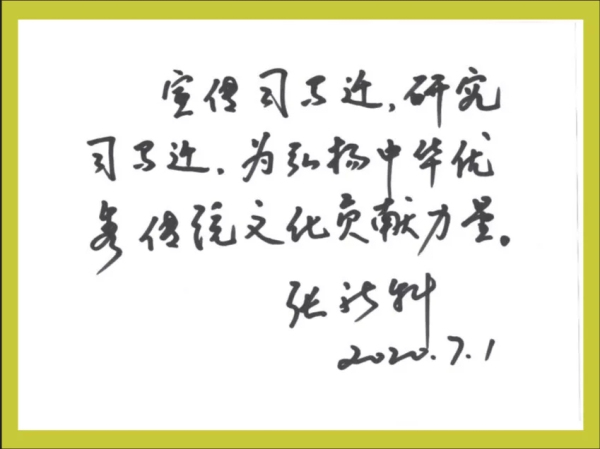 宣传司马迁，研究
司马迁，为弘扬中华优
秀传统文化贡献力量。
张新科
2020.7.1